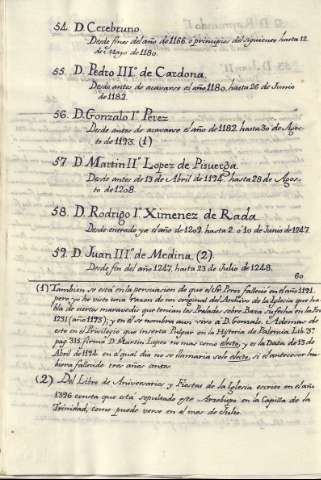 54. D. Cerebruno.
Desde fines del año de 1166. o principios del siguiente hasta 12.
de Mayo de 1180.
55. D. Pedro III.º de Cardona.
Desde antes de acavarse el año 1180. hasta 26 de Junio
de 1182.
56. D. Gonzalo I.º Perez
Desde antes de acavarse el año de 1182. hasta 30 de Agos-
to de 1193. (1)
57 D. Martin II.º Lopez de Pisuerga.
Desde antes de 13 de Abril de 1194. hasta 28 de Agos-
to de 1208.
58. D. Rodrigo I.º Ximenez de Rada
Desde entrado ya el año de 1209. hasta 2. o 10. de Junio de 1247.
59. D. Juan III.º de Medina. (2)
Desde fin del año 1247. hasta 23 de Julio de 1248.
60
(1) Tambien se está en la persuasion de que el Sr. Perez fallecio en el año 1191.
pero yo he visto una razon de un original del Archivo de la Iglesia que ha-
bla de ciertos maravedis que tenian los Prelados sobre su fecha en la Era
1231 (año 1193); y en el se nombra aun vivo á D. Gonzalo. Ademas de
esto en el Privilegio que inserta Pulgar en la Historia de Palencia Lib. 2.º
pag. 315. firma D. Martin Lopez no mas como electo; y es la Data de 13 de
Abril de 1194. en el qual dia no se llamaria solo electo, si el antecesor hu-
biera fallecido tres años antes.
(2) Del Libro de Aniversarios y Fiestas de la Iglesia escrito en el año
1396 consta que está sepultado este Arzobispo en la Capilla de la
Trinidad, como puede verse en el mes de Julio.